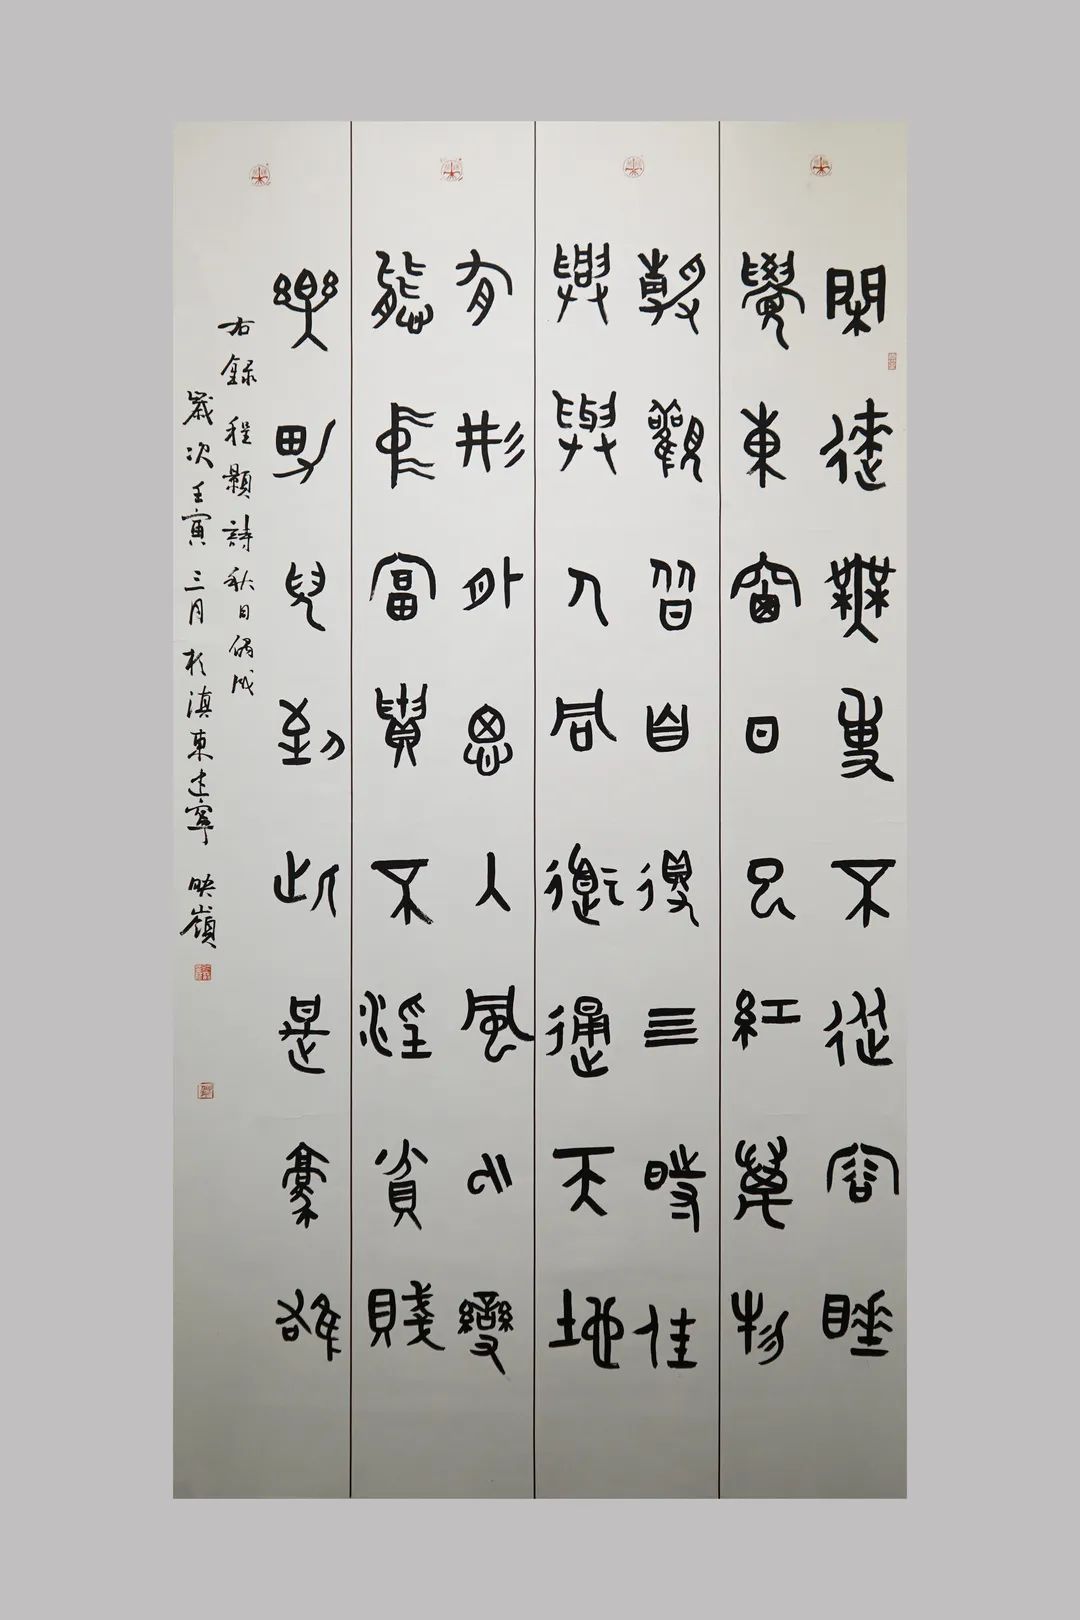 閑來無事不從容睡
覺東窗日已紅萬物
靜觀皆自得四時佳
興與人同道通天地
有形外思入風雲變
態中富貴不淫貧賤
樂男兒到此是豪雄
右録程顥詩秋日偶成
歲次壬寅三月於滇東建寧 映嶺